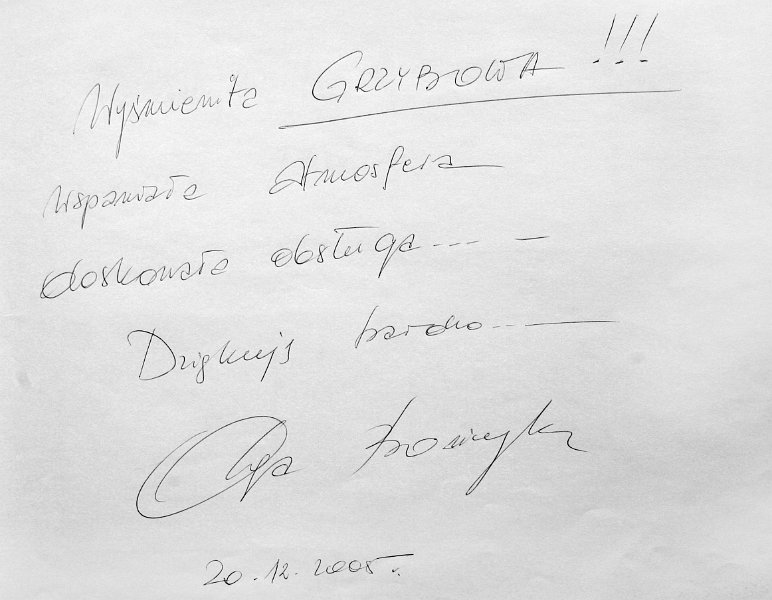 Wyśmienita GRZYBOWA !!!
wspaniała atmosfera
doskonała obsługa... -
Dziękuję bardzo...
Olga
20.12.2005r.